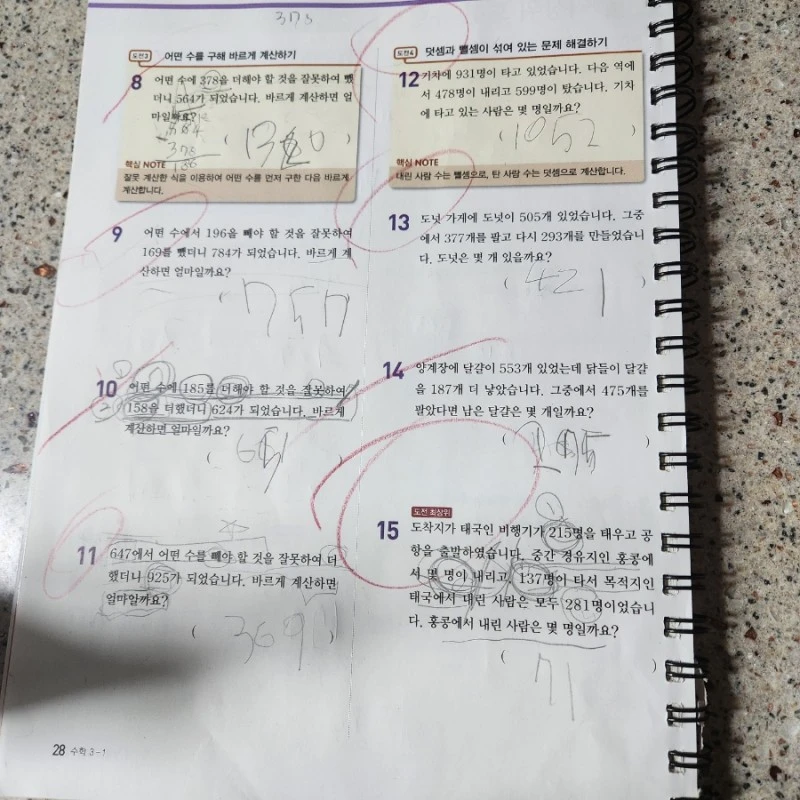 378
도전3 어떤 수를 구해 바르게 계산하기
8 어떤 수에 378을 더해야 할 것을 잘못하여 뺐
더니 564가 되었습니다. 바르게 계산하면 얼
마일까요?
564
378
( )
핵심 NOTE
잘못 계산한 식을 이용하여 어떤 수를 먼저 구한 다음 바르게
계산합니다.
9 어떤 수에서 196을 빼야 할 것을 잘못하여
169를 뺐더니 784가 되었습니다. 바르게 계
산하면 얼마일까요?
( 757 )
10 어떤 수에 185를 더해야 할 것을 잘못하여
158을 더했더니 624가 되었습니다. 바르게
계산하면 얼마일까요?
( 651 )
11 647에서 어떤 수를 빼야 할 것을 잘못하여 더
했더니 925가 되었습니다. 바르게 계산하면
얼마일까요?
( 369 )
28 수학 3-1
도전4 덧셈과 뺄셈이 섞여 있는 문제 해결하기
12 기차에 931명이 타고 있었습니다. 다음 역에
서 478명이 내리고 599명이 탔습니다. 기차
에 타고 있는 사람은 몇 명일까요?
( 1052 )
핵심 NOTE
내린 사람 수는 뺄셈으로, 탄 사람 수는 덧셈으로 계산합니다.
13 도넛 가게에 도넛이 505개 있었습니다. 그중
에서 377개를 팔고 다시 293개를 만들었습니
다. 도넛은 몇 개 있을까요?
( 421 )
14 양계장에 달걀이 553개 있었는데 닭들이 달걀
을 187개 더 낳았습니다. 그중에서 475개를
팔았다면 남은 달걀은 몇 개일까요?
( )
도전 최상위
15 도착지가 태국인 비행기가 215명을 태우고 공
항을 출발하였습니다. 중간 경유지인 홍콩에
서 몇 명이 내리고 137명이 타서 목적지인
태국에서 내린 사람은 모두 281명이었습니
다. 홍콩에서 내린 사람은 몇 명일까요?
( 71 )